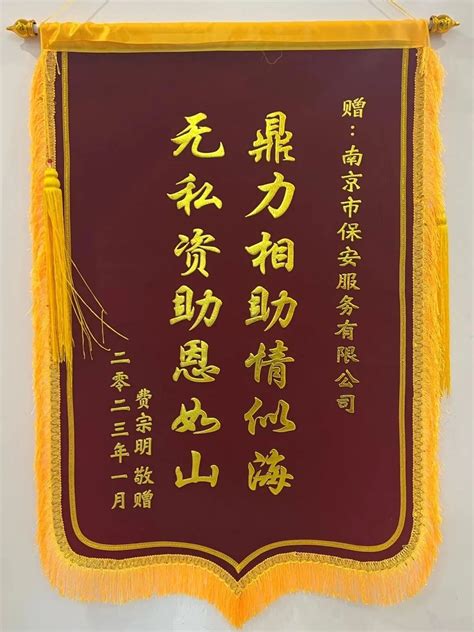 赠：南京市保安服务有限公司
鼎力相助情似海
无私资助恩如山
费宗明 敬赠
二零二三年一月